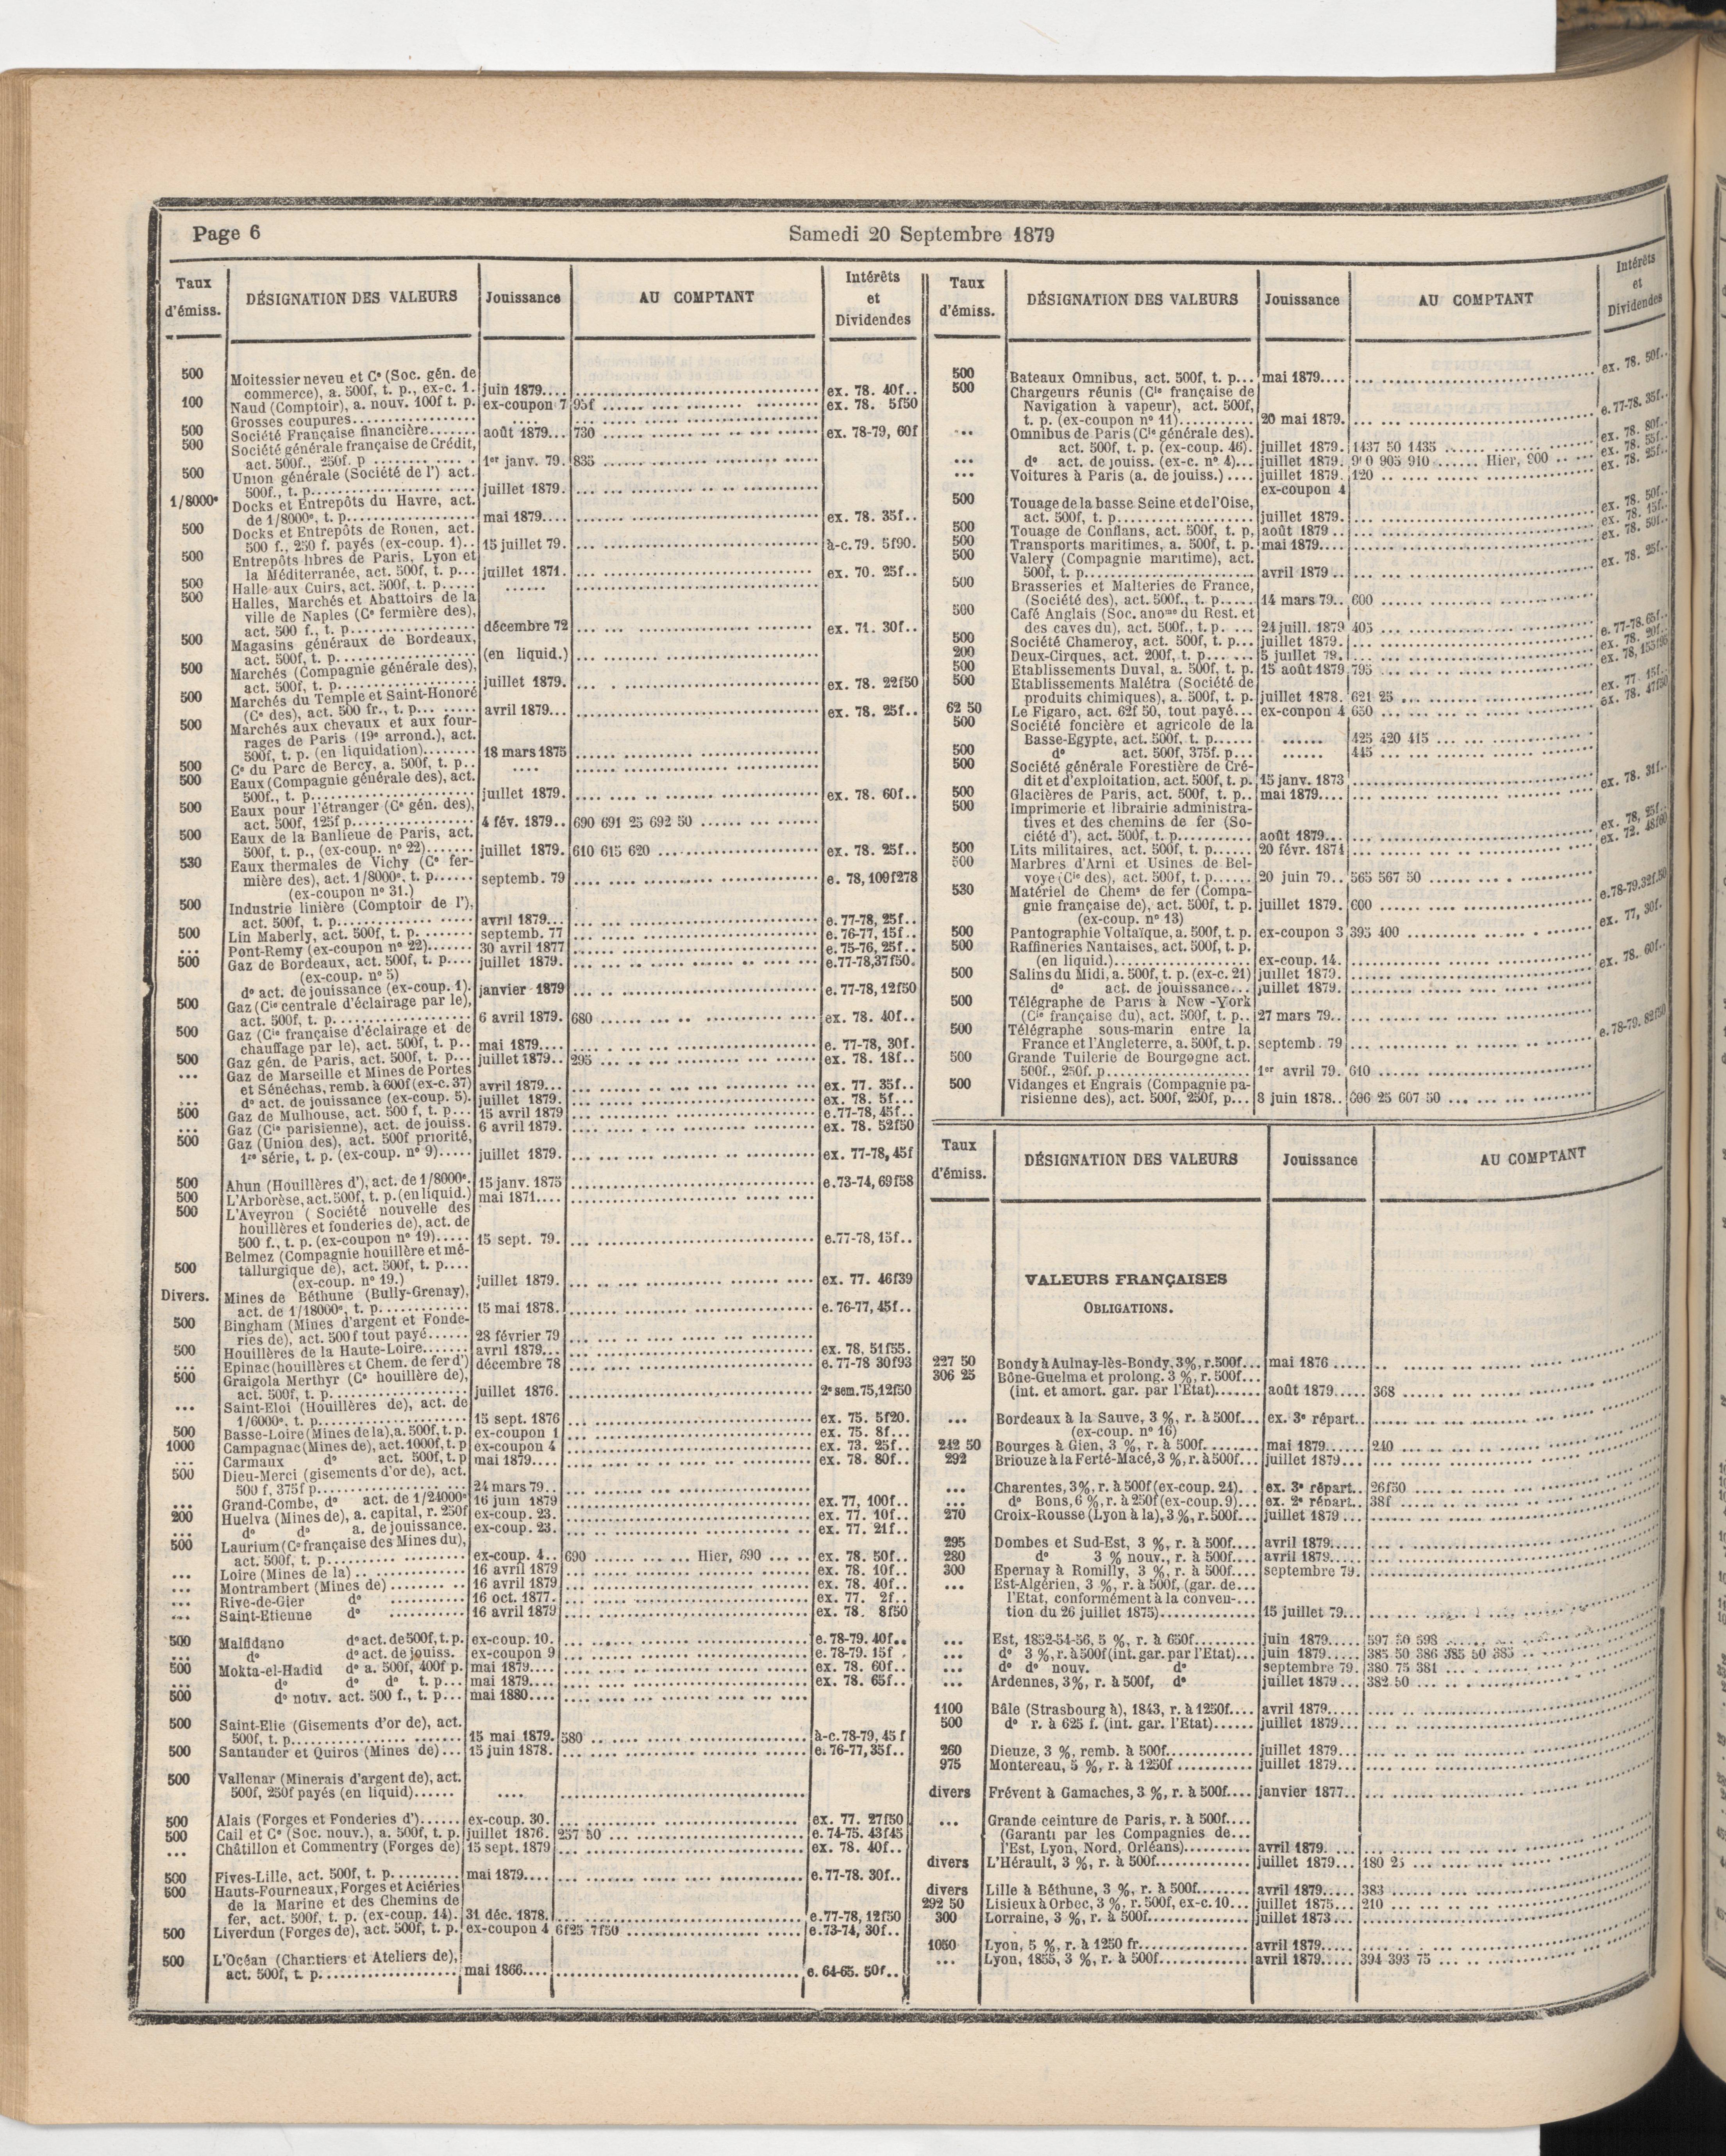 Page 6
Samedi 20 Septembre 1879
Taux d'émiss.
DÉSIGNATION DES VALEURS
Jouissance
AU COMPTANT
Intérêts et Dividendes
500 Moitessier neveu et Ce (Soc. gén. de
commerce), a. 500f, t. p., ex-c. 1. juin 1879.... ex. 78. 40f..
100 Naud (Comptoir), a. nouv. 100f t. p. ex-coupon 7 95f ex. 78. 5f50
Grosses coupures.... ....
500 Société Française financière.... août 1879... 730 ex. 78-79, 60f
500 Société générale française de Crédit,
act. 500f., 250f. p .... 1er janv. 79. 835
500 Union générale (Société de l') act.
500f., t. p.... juillet 1879.
1/8000e Docks et Entrepôts du Havre, act.
de 1/8000e, t. p.... mai 1879.... ex. 78. 35f..
500 Docks et Entrepôts de Rouen, act.
500 f., 250 f. payés (ex-coup. 1).. 15 juillet 79. à-c. 79. 5f90.
500 Entrepôts libres de Paris, Lyon et
la Méditerranée, act. 500f, t. p... juillet 1871. ex. 70. 25f..
500 Halle aux Cuirs, act. 500f, t. p..... ......
500 Halles, Marchés et Abattoirs de la
ville de Naples (Ce fermière des),
act. 500 f., t. p.... décembre 72 ex. 71. 30f..
500 Magasins généraux de Bordeaux,
act. 500f, t. p.... (en liquid.)
500 Marchés (Compagnie générale des),
act. 500f, t. p.... juillet 1879. ex. 78. 22f50
500 Marchés du Temple et Saint-Honoré
(Ce des), act. 500 fr., t. p... avril 1879... ex. 78. 25f..
500 Marchés aux chevaux et aux four-
rages de Paris (19e arrond.), act.
500f, t. p. (en liquidation)........ 18 mars 1875
500 Ce du Parc de Bercy, a. 500f, t. p.. ....
500 Eaux (Compagnie générale des), act.
500f., t. p.... juillet 1879. ex. 78. 60f..
500 Eaux pour l'étranger (Ce gén. des),
act. 500f, 125f p.... 4 fév. 1879.. 690 691 25 692 50
500 Eaux de la Banlieue de Paris, act.
500f, t. p., (ex-coup. no 22)....... juillet 1879. 610 615 620 ex. 78. 25f..
530 Eaux thermales de Vichy (Ce fer-
mière des), act. 1/8000e, t. p...... septemb. 79 e. 78, 109f278
(ex-coupon no 31.)
500 Industrie linière (Comptoir de l'),
act. 500f, t. p.... avril 1879... e. 77-78, 25f..
500 Lin Maberly, act. 500f, t. p. .... septemb. 77 e. 76-77, 15f..
... Pont-Remy (ex-coupon no 22)....... 30 avril 1877 e. 75-76, 25f..
500 Gaz de Bordeaux, act. 500f, t. p.... juillet 1879. e.77-78,37f50.
(ex-coup. no 5)
do act. de jouissance (ex-coup. 1). janvier 1879 e. 77-78, 12f50
500 Gaz (Cie centrale d'éclairage par le),
act. 500f, t. p.... 6 avril 1879. 680 ex. 78. 40f..
500 Gaz (Cie française d'éclairage et de
chauffage par le), act. 500f, t. p.. mai 1879.... e. 77-78, 30f.
500 Gaz gén. de Paris, act. 500f, t. p... juillet 1879.. 295 ex. 78. 18f..
... Gaz de Marseille et Mines de Portes
et Sénéchas, remb. à 600f (ex-c. 37) avril 1879... ex. 77. 35f..
... do act. de jouissance (ex-coup. 5). juillet 1879. ex. 78. 5f...
500 Gaz de Mulhouse, act. 500 f, t. p... 15 avril 1879 e.77-78, 45f..
... Gaz (Cie parisienne), act. de jouiss. 6 avril 1879. ex. 78. 52f50
500 Gaz (Union des), act. 500f priorité,
1re série, t. p. (ex-coup. no 9)..... juillet 1879. ex. 77-78, 45f
500 Ahun (Houillères d'), act. de 1/8000e. 15 janv. 1875 e.73-74, 69f58
500 L'Arborèse, act. 500f, t. p. (en liquid.) mai 1871....
500 L'Aveyron ( Société nouvelle des
houillères et fonderies de), act. de
500 f., t. p. (ex-coupon no 19)..... 15 sept. 79. e.77-78, 15f..
Belmez (Compagnie houillère et mé-
500 tallurgique de), act. 500f, t. p....
(ex-coup. no 19.) juillet 1879. ex. 77. 46f39
Divers. Mines de Béthune (Bully-Grenay),
act. de 1/18000e, t. p.... 15 mai 1878. e. 76-77, 45f..
500 Bingham (Mines d'argent et Fonde-
ries de), act. 500 f tout payé...... 28 février 79
500 Houillères de la Haute-Loire....... avril 1879... ex. 78, 51f55.
... Epinac (houillères et Chem. de fer d') décembre 78 e. 77-78 30f93
500 Graigola Merthyr (Ce houillère de),
act. 500f, t. p.... juillet 1876. 2e sem. 75, 12f50
... Saint-Eloi (Houillères de), act. de
1/6000e, t. p.... 15 sept. 1876 ex. 75. 5f20.
500 Basse-Loire (Mines de la), a. 500f, t. p. ex-coupon 1 ex. 75. 8f...
1000 Campagnac (Mines de), act. 1000f, t. p ex-coupon 4 ex. 73. 25f..
... Carmaux do act. 500f, t. p mai 1879.... ex. 78. 80f..
500 Dieu-Merci (gisements d'or de), act.
500 f, 375f p.... 24 mars 79..
... Grand-Combe, do act. de 1/24000e 16 juin 1879 ex. 77, 100f..
200 Huelva (Mines de), a. capital, r. 250f ex-coup. 23. ex. 77. 10f..
... do do a. de jouissance. ex-coup. 23. ex. 77. 21f..
500 Laurium (Ce française des Mines du),
act. 500f, t. p.... ex-coup. 4.. 690 Hier, 690 ex. 78. 50f..
... Loire (Mines de la) .... 16 avril 1879 ex. 78. 10f..
... Montrambert (Mines de) .... 16 avril 1879 ex. 78. 40f..
... Rive-de-Gier do .... 16 oct. 1877. ex. 77. 2f..
... Saint-Etienne do .... 16 avril 1879 ex. 78. 8f50
500 Malfidano do act. de 500f, t. p. ex-coup. 10. e. 78-79. 40f..
... do do act. de jouiss. ex-coupon 9 e. 78-79. 15f .
500 Mokta-el-Hadid do a. 500f, 400f p. mai 1879.... ex. 78. 60f..
... do do do t. p... mai 1879.... ex. 78. 65f..
500 do nouv. act. 500 f., t. p... mai 1880....
500 Saint-Elie (Gisements d'or de), act.
500f, t. p.... 15 mai 1879. 580 à-c. 78-79, 45 f
500 Santander et Quiros (Mines de)... 15 juin 1878. e. 76-77, 35f..
500 Vallenar (Minerais d'argent de), act.
500f, 250f payés (en liquid)...... ....
500 Alais (Forges et Fonderies d')...... ex-coup. 30. ex. 77. 27f50
500 Cail et Ce (Soc. nouv.), a. 500f, t. p. juillet 1876. 257 50 e. 74-75. 43f45
... Châtillon et Commentry (Forges de) 15 sept. 1879 ex. 78. 40f..
500 Fives-Lille, act. 500f, t. p......... mai 1879.... e. 77-78. 30f..
500 Hauts-Fourneaux, Forges et Aciéries
de la Marine et des Chemins de
fer, act. 500f, t. p. (ex-coup. 14). 31 déc. 1878. e. 77-78, 12f50
500 Liverdun (Forges de), act. 500f, t. p. ex-coupon 4 6f25 7f50 e. 73-74, 30f..
500 L'Océan (Chantiers et Ateliers de),
act. 500f, t. p.... mai 1866.... e. 64-65. 50f..
Taux d'émiss.
DÉSIGNATION DES VALEURS
Jouissance
AU COMPTANT
Intérêts et Dividendes
500 Bateaux Omnibus, act. 500f, t. p... mai 1879.... ex. 78. 50f..
500 Chargeurs réunis (Cie française de
Navigation à vapeur), act. 500f,
t. p. (ex-coupon no 11)............ 20 mai 1879. e. 77-78. 35f..
... Omnibus de Paris (Cie générale des).
act. 500f, t. p. (ex-coup. 46). juillet 1879. 1437 50 1435 ex. 78. 80f..
... do act. de jouiss. (ex-c. no 4)... juillet 1879. 910 905 910 Hier, 900 ex. 78. 55f..
... Voitures à Paris (a. de jouiss.) .... juillet 1879. 120 ex. 78. 25f..
ex-coupon 4
500 Touage de la basse Seine et de l'Oise,
act. 500f, t. p.... juillet 1879. ex. 78. 50f..
500 Touage de Conflans, act. 500f, t. p, août 1879 .. ex. 78. 15f..
500 Transports maritimes, a. 500f, t. p. mai 1879.... ex. 78. 50f..
500 Valery (Compagnie maritime), act.
500f, t. p.... avril 1879 .. ex. 78. 25f..
500 Brasseries et Malteries de France,
(Société des), act. 500f., t. p...... 14 mars 79.. 600
500 Café Anglais (Soc. anome du Rest. et
des caves du), act. 500f., t. p. .... 24 juill. 1879 405
500 Société Chameroy, act. 500f, t. p... juillet 1879. e. 77-78. 65f..
200 Deux-Cirques, act. 200f, t. p....... 5 juillet 79. ex. 78. 20f..
500 Etablissements Duval, a. 500f, t. p. 15 août 1879 795
500 Etablissements Malétra (Société de
produits chimiques), a. 500f, t. p. juillet 1878. 621 25 ex. 77. 15f..
62 50 Le Figaro, act. 62f 50, tout payé... ex-coupon 4 650 ex. 78. 47f50
500 Société foncière et agricole de la
Basse-Egypte, act. 500f, t. p...... ...... 425 420 415
500 do act. 500f, 375f. p... ...... 445
500 Société générale Forestière de Cré-
dit et d'exploitation, act. 500f, t. p. 15 janv. 1873
500 Glacières de Paris, act. 500f, t. p.. mai 1879.... ex. 78. 31f..
500 Imprimerie et librairie administra-
tives et des chemins de fer (So-
ciété d'), act. 500f, t. p.......... août 1879... ex. 78, 25f..
500 Lits militaires, act. 500f, t. p...... 20 févr. 1874 ex. 72. 48f60
500 Marbres d'Arni et Usines de Bel-
voye (Cie des), act. 500f, t. p...... 20 juin 79.. 565 567 50
530 Matériel de Chems de fer (Compa-
gnie française de), act. 500f, t. p. juillet 1879. 600 e.78-79.32f.50
(ex-coup. no 13)
500 Pantographie Voltaïque, a. 500f, t. p. ex-coupon 3 395 400 ex. 77, 30f.
500 Raffineries Nantaises, act. 500f, t. p.
(en liquid.).... ex-coup. 14.
500 Salins du Midi, a. 500f, t. p. (ex-c. 21) juillet 1879. ex. 78. 60f..
do act. de jouissance... juillet 1879.
500 Télégraphe de Paris à New -York
(Cie française du), act. 500f, t. p.. 27 mars 79..
500 Télégraphe sous-marin entre la
France et l'Angleterre, a. 500f, t. p. septemb. 79 e. 78-79. 82f50
500 Grande Tuilerie de Bourgogne act.
500f., 250f. p.... 1er avril 79. 610
500 Vidanges et Engrais (Compagnie pa-
risienne des), act. 500f, 250f, p... 8 juin 1878.. 606 25 607 50
Taux d'émiss.
DÉSIGNATION DES VALEURS
Jouissance
AU COMPTANT
VALEURS FRANÇAISES
OBLIGATIONS.
227 50 Bondy à Aulnay-lès-Bondy, 3%, r. 500f... mai 1876 .....
306 25 Bône-Guelma et prolong. 3 %, r. 500f...
(int. et amort. gar. par l'Etat)....... août 1879.... 368
... Bordeaux à la Sauve, 3 %, r. à 500f... ex. 3e répart..
(ex-coup. no 16)
242 50 Bourges à Gien, 3 %, r. à 500f........ mai 1879..... 240
292 Briouze à la Ferté-Macé, 3 %, r. à 500f... juillet 1879...
... Charentes, 3%, r. à 500f (ex-coup. 24). . ex. 3e répart.. 26f50
... do Bons, 6 %, r. à 250f (ex-coup. 9)... ex. 2e répart.. 38f
270 Croix-Rousse (Lyon à la), 3 %, r. 500f... juillet 1879 ...
295 Dombes et Sud-Est, 3 %, r. à 500f.... avril 1879....
280 do 3 % nouv., r. à 500f.... avril 1879....
300 Epernay à Romilly, 3 %, r. à 500f.... septembre 79.
... Est-Algérien, 3 %, r. à 500f, (gar. de...
l'Etat, conformément à la conven-...
tion du 26 juillet 1875)............ 15 juillet 79...
... Est, 1852-54-56, 5 %, r. à 650f......... juin 1879..... 597 50 598
... do 3 %, r. à 500f (int. gar. par l'Etat)... juin 1879..... 385 50 386 385 50 385
... do do nouv. do septembre 79. 380 75 381
... Ardennes, 3%, r. à 500f, do juillet 1879 ... 382 50
1100 Bâle (Strasbourg à), 1843, r. à 1250f.... avril 1879....
500 do r. à 625 f. (int. gar. l'Etat)...... juillet 1879...
260 Dieuze, 3 %, remb. à 500f............ juillet 1879...
975 Montereau, 5 %, r. à 1250f ........... juillet 1879...
divers Frévent à Gamaches, 3 %, r. à 500f.... janvier 1877..
... Grande ceinture de Paris, r. à 500f....
(Garanti par les Compagnies de...
l'Est, Lyon, Nord, Orléans).......... avril 1879. ...
divers L'Hérault, 3 %, r. à 500f............. juillet 1879... 180 25
divers Lille à Béthune, 3 %, r. à 500f........ avril 1879..... 383
292 50 Lisieux à Orbec, 3 %, r. 500f, ex-c. 10... juillet 1875... 210
300 Lorraine, 3 %, r. à 500f.............. juillet 1873...
1050 Lyon, 5 %, r. à 1250 fr............... avril 1879.....
... Lyon, 1855, 3 %, r. à 500f........... avril 1879..... 394 393 75